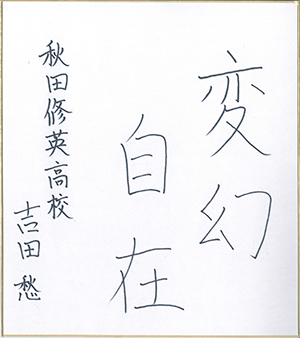 変幻
自在
秋田修英高校
吉田愁